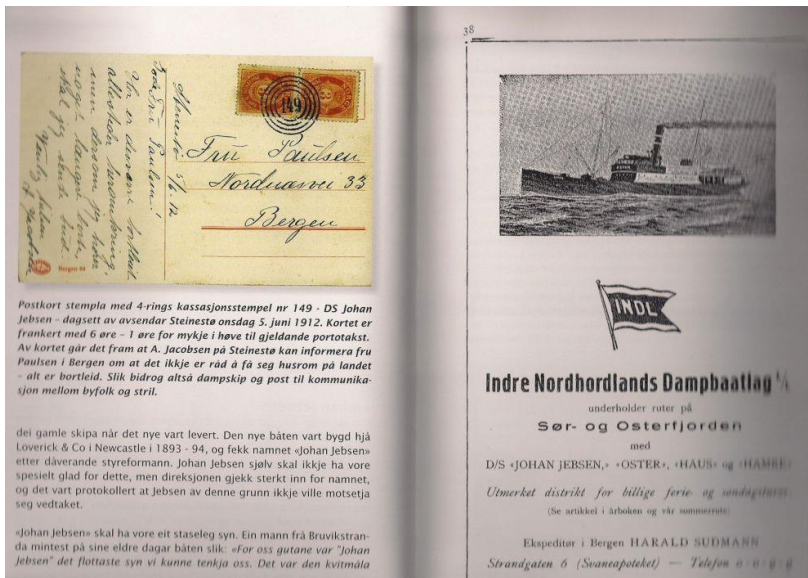 149
Steinestø 5/6 12
Fru Paulsen!
Fru Paulsen
Nordnæsvei 33
Bergen
Bergen
Postkort stempla med 4-rings kassasjonsstempel nr 149 - DS Johan
Jebsen - dagsett av avsendar Steinestø onsdag 5. juni 1912. Kortet er
frankert med 6 øre - 1 øre for mykje i høve til gjeldande portotakst.
Av kortet går det fram at A. Jacobsen på Steinestø kan informera fru
Paulsen i Bergen om at det ikkje er råd å få seg husrom på landet
- alt er bortleid. Slik bidrog altså dampskip og post til kommunika-
sjon mellom byfolk og stril.
dei gamle skipa når det nye vart levert. Den nye båten vart bygd hjå
Loverick & Co i Newcastle i 1893 - 94, og fekk namnet «Johan Jebsen»
etter dåverande styreformann. Johan Jebsen sjølv skal ikkje ha vore
spesielt glad for dette, men direksjonen gjekk sterkt inn for namnet,
og det vart protokollert at Jebsen av denne grunn ikkje ville motsetja
seg vedtaket.
«Johan Jebsen» skal ha vore eit staseleg syn. Ein mann frå Bruvikstran-
da mintest på sine eldre dagar båten slik: «For oss gutane var "Johan
Jebsen" det flottaste syn vi kunne tenkja oss. Det var den kvitmåla
38
INDL
Indre Nordhordlands Dampbaatlag
underholder ruter på
Sør- og Osterfjorden
med
D/S «JOHAN JEBSEN,» «OSTER», «HAUS» og «HAMRE»
Utmerket distrikt for billige ferie- og søndagsturer
(Se artikkel i årboken og vår sommerrute)
Ekspeditør i Bergen HARALD SUDMANN
Strandgaten 6 (Svaneapoteket) — Telefon